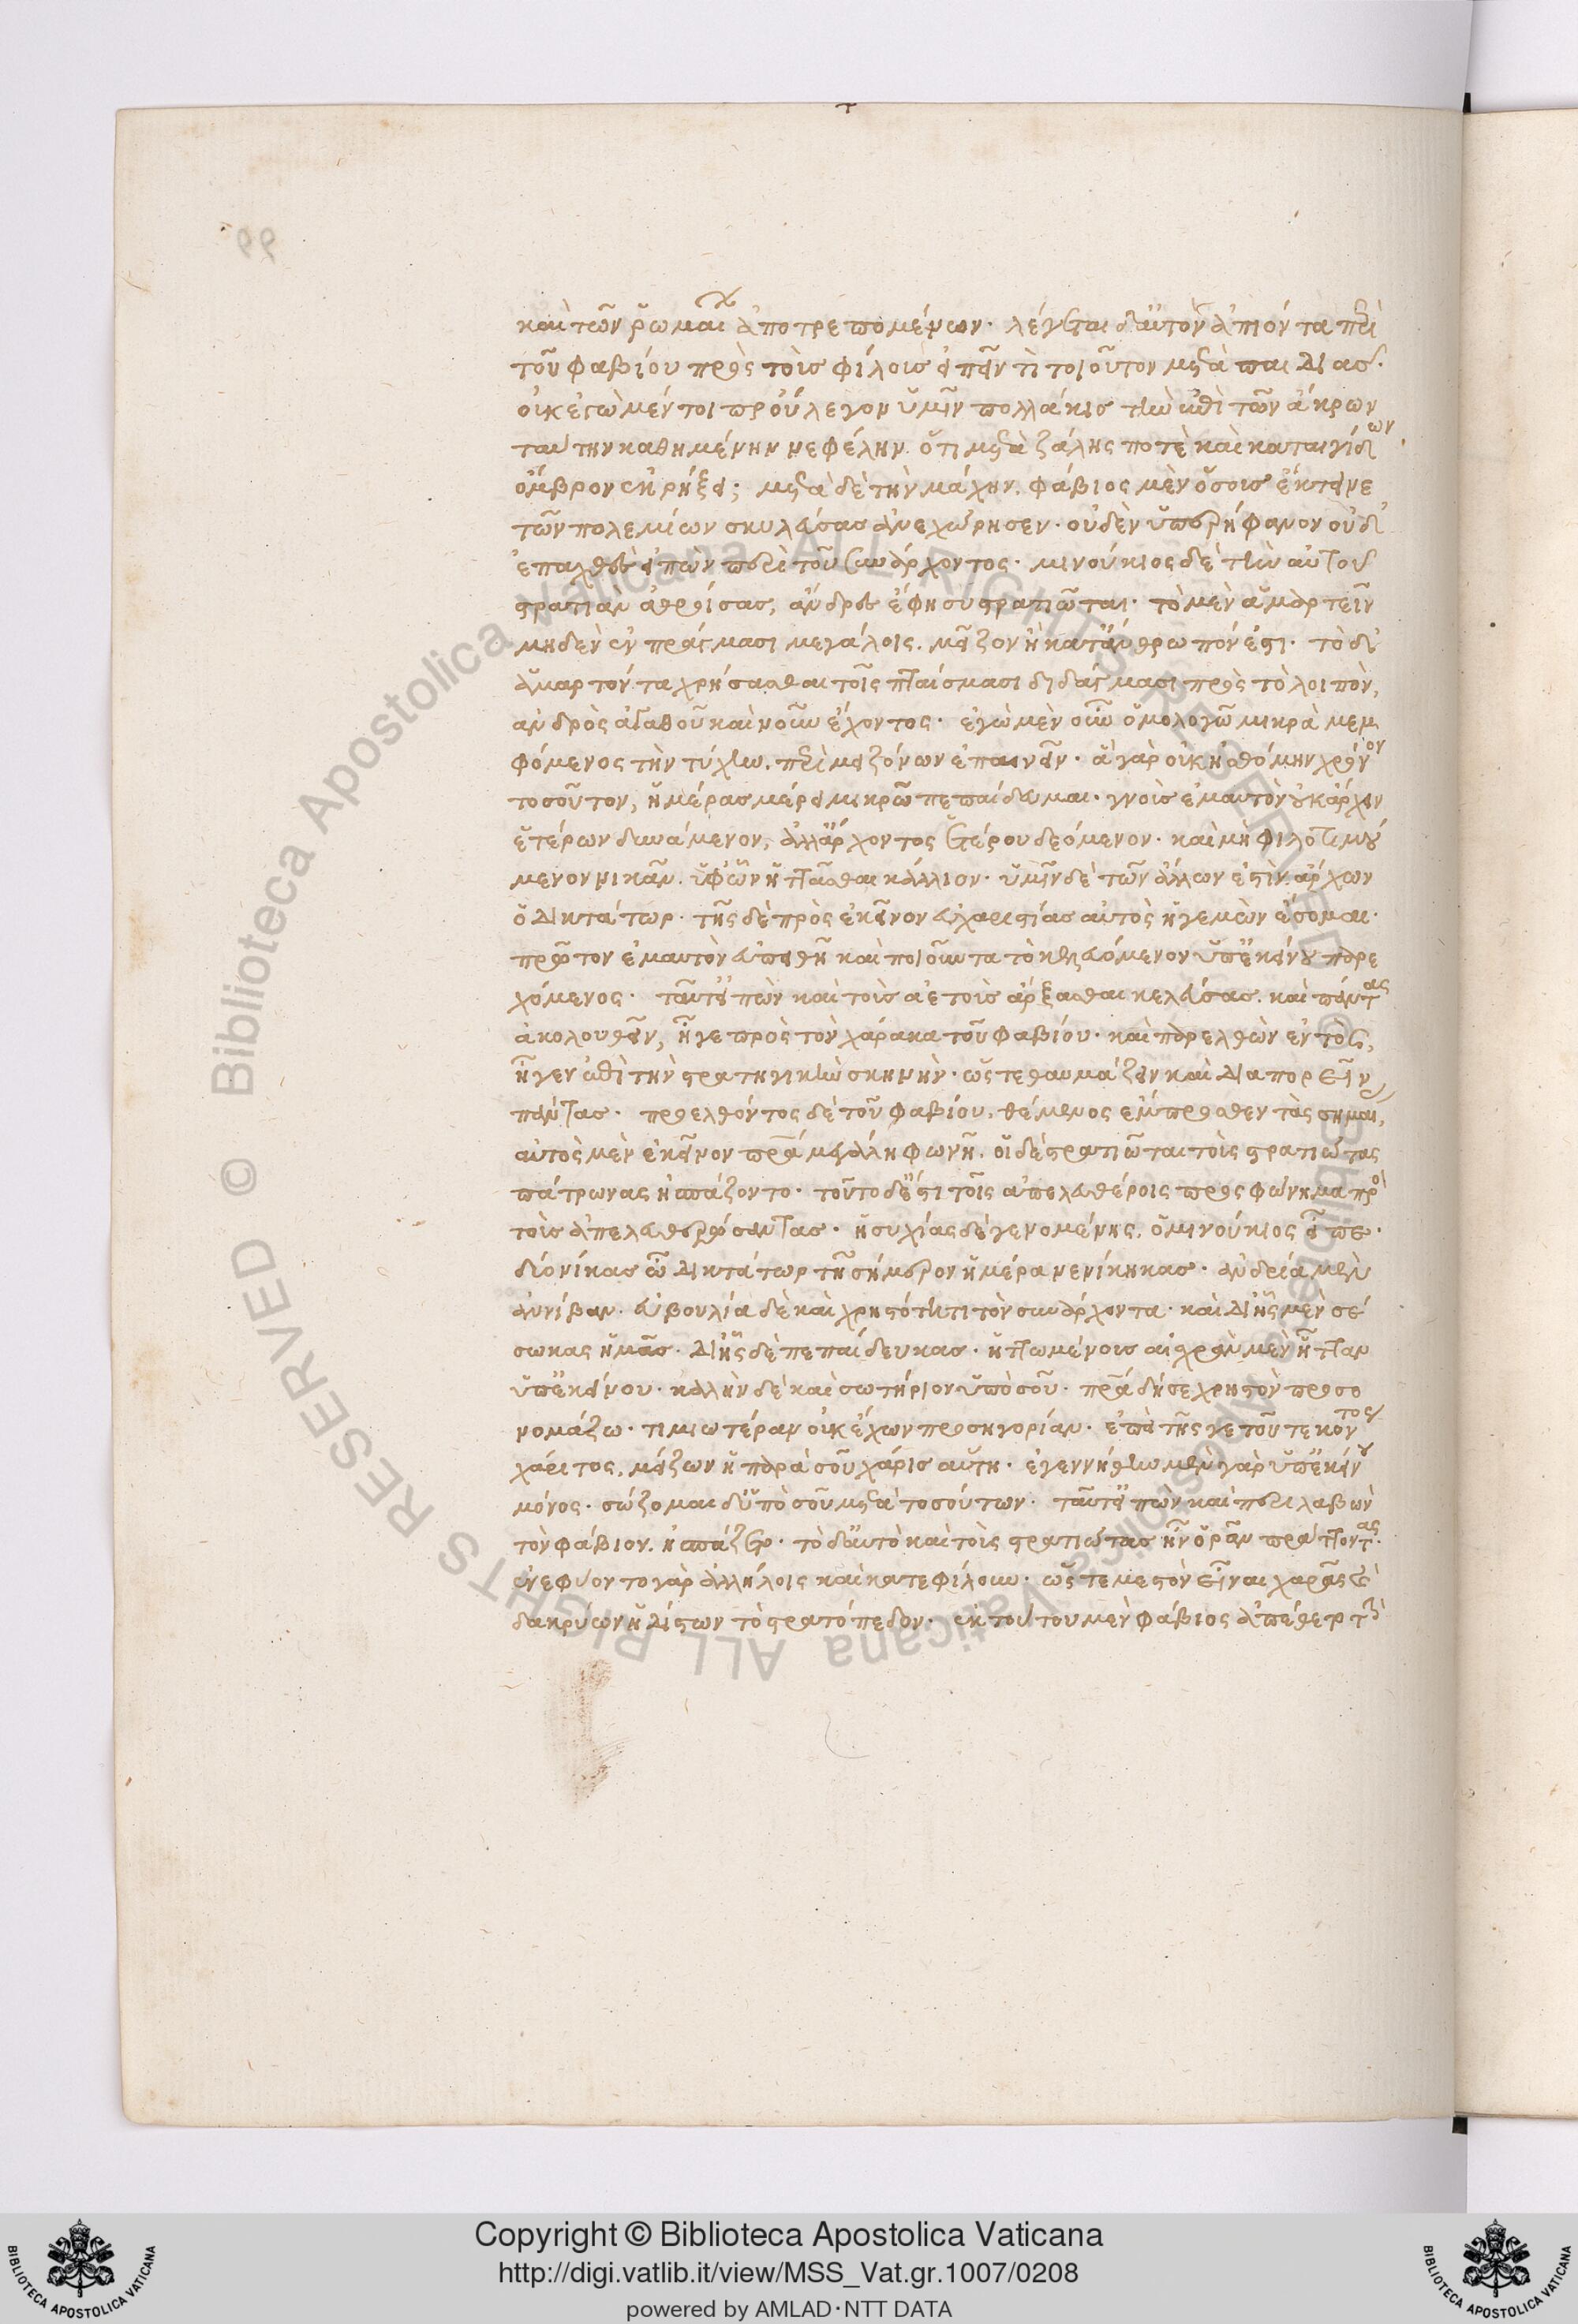 καὶ τῶν ῥωμαίων ἀποτρεπομένων. λέγεται δ' αὐτὸν ἀπιόντα περὶ
τοῦ φαβίου πρὸς τοὺς φίλους εἰπεῖν τὶ τοιοῦτον μετὰ παιδιᾶς.
οὐκ ἐγὼ μέντοι προὔλεγον ὑμῖν πολλάκις τὴν ἐπὶ τῶν ἄκρων
ταύτην καθημένην νεφέλην ὅτι μετὰ ζάλης ποτὲ καὶ καταιγίδων
ὄμβρον ἐκρήξει; μετὰ δὲ τὴν μάχην. φάβιος μὲν ὅσους ἔκτεινε
τῶν πολεμίων σκυλεύσας ἀνεχώρησεν. οὐδὲν ὑπερήφανον οὐδ'
ἐπαχθὲς εἰπὼν περὶ τοῦ συνάρχοντος. μινούκιος δὲ τὴν αὐτοῦ
στρατιὰν ἀθροίσας, ἄνδρες ἔφη συστρατιῶται. τὸ μὲν ἁμαρτεῖν
μηδὲν ἐν πράγμασι μεγάλοις. μεῖζον ἢ κατ' ἄνθρωπόν ἐστι. τὸ δ'
ἁμαρτόντα χρήσασθαι τοῖς πταίσμασι διδάγμασι πρὸς τὸ λοιπὸν,
ἀνδρὸς ἀγαθοῦ καὶ νοῦν ἔχοντος. ἐγὼ μὲν οὖν ὁμολογῶ μικρὰ μεμ
φόμενος τὴν τύχην. περὶ μειζόνων ἐπαινεῖν. ἃ γὰρ οὐκ ἠσθόμην χρόνον
τοσοῦτον, ἡμέρας μέρει μικρῷ πεπαίδευμαι. γνοὺς ἐμαυτὸν οὐκ ἄρχειν
ἑτέρων δυνάμενον, ἀλλ' ἄρχοντος ἑτέρου δεόμενον. καὶ μὴ φιλοτιμού
μενον νικᾶν. ὑφ' ὧν ἡττᾶσθαι κάλλιον. ὑμῖν δὲ τῶν ἄλλων ἐστὶν ἄρχων
ὁ δικτάτωρ. τῆς δὲ πρὸς ἐκεῖνον εὐχαριστίας αὐτὸς ἡγεμὼν ἔσομαι.
πρῶτον ἐμαυτὸν εὐπειθῆ καὶ ποιοῦντα τὸ κελευόμενον ὑπ' ἐκείνου παρε
χόμενος. ταῦτ' εἰπὼν καὶ τοὺς ἀετοὺς ἄρξασθαι κελεύσας. καὶ πάντας
ἀκολουθεῖν, ἦγε πρὸς τὸν χάρακα τοῦ φαβίου. καὶ παρελθὼν ἐντὸς,
ἦγεν ἐπὶ τὴν στρατηγικὴν σκηνὴν. ὥστε θαυμάζειν καὶ διαπορεῖν
πάντας. προελθόντος δὲ τοῦ φαβίου. θέμενος ἔμπροσθεν τὰς σημαίας,
αὐτὸς μὲν ἐκεῖνον πατέρα μεγάλῃ φωνῇ. οἱ δὲ στρατιῶται τοὺς στρατιώτας
πάτρωνας ἠσπάζοντο. τοῦτο δ' ἔστι τοῖς ἀπελευθέροις προσφώνημα πρὸς
τοὺς ἀπελευθερώσαντας. ἡσυχίας δὲ γενομένης. ὁ μινούκιος εἶπε.
δύο νίκας ὦ δικτάτωρ τῇ σήμερον ἡμέρα νενίκηκας. ἀνδρεία μὲν
ἀννίβαν. εὐβουλία δὲ καὶ χρηστότητι τὸν συνάρχοντα. καὶ δι' ἧς μὲν σέ
σωκας ἡμᾶς. δι' ἧς δὲ πεπαίδευκας. ἡττωμένους αἰσχρὰν μὲν ἧτταν
ὑπ' ἐκείνου. καλὴν δὲ καὶ σωτήριον ὑπὸ σοῦ. πατέρα δή σε χρηστὸν προσο
νομάζω. τιμιωτέραν οὐκ ἔχων προσηγορίαν. ἐπεὶ τῆς γε τοῦ τεκόντος
χάριτος, μείζων ἡ παρὰ σοῦ χάρις αὕτη. ἐγεννήθην μὲν γὰρ ὑπ' ἐκείνου
μόνος. σώζομαι δ' ὑπὸ σοῦ μετὰ τοσούτων. ταῦτ' εἰπὼν καὶ περιλαβὼν
τὸν φάβιον. ἠσπάζετο. τὸ δ' αὐτὸ καὶ τοὺς στρατιώτας ἦν ὁρᾶν πράττοντας.
ἐνεφύοντο γὰρ ἀλλήλοις καὶ κατεφίλουν. ὥστε μεστὸν εἶναι χαρᾶς καὶ
δακρύων ἡδίστων τὸ στρατόπεδον. ἐκ τούτου μὲν φάβιος ἀπέθετο τὴν
Copyright © Biblioteca Apostolica Vaticana
http://digi.vatlib.it/view/MSS_Vat.gr.1007/0208
powered by AMLAD·NTT DATA